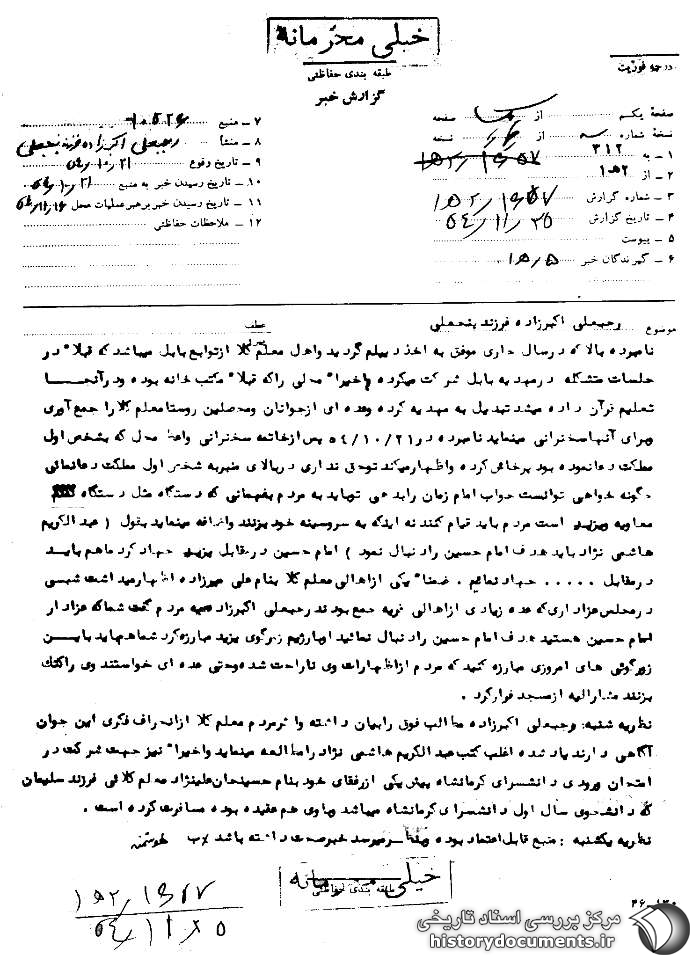 خیلی محرمانه
طبقه بندی حفاظتی
گزارش خبر
درجه فوریت
صفحه یکم از صفحه
نسخه شماره سه از نسخه
۱ ـ به ۳۱۲
۲ ـ از ۱ه۲
۳ ـ شماره گزارش ۱ه۲/۱۹۵۷
۴ ـ تاریخ گزارش ۵۴/۱۱/۲۵
۵ ـ پیوست
۶ ـ گیرندگان خبر ۱ه/۵
۷ ـ منبع ۱۰۵۲۶
۸ ـ منشأ رجبعلی اکبرزاده فرزند پنجعلی
۹ ـ تاریخ وقوع ۵۴/۱۰/۲۱
۱۰ ـ تاریخ رسیدن خبر به منبع ۵۴/۱۰/۲۱
۱۱ ـ تاریخ رسیدن خبر برهبر عملیات محل ۵۴/۱۱/۱۶
۱۲ ـ ملاحظات حفاظتی
موضوع رجبعلی اکبرزاده فرزند پنجعلی
عطف
نامبرده بالا که در سال جاری موفق به اخذ دیپلم گردید واهل معلم کلا از توابع بابل میباشد که قبلا" در
جلسات متشکله در مهدیه بابل شرکت میکرده واخیرا" محلی راکه قبلا" مکتب خانه بوده ودرآنجا
تعلیم قرآن داده میشد تبدیل به مهدیه کرده وعده ای ازجوانان ومحصلین روستا معلم کلا را جمع آوری
وبرای آنها سخنرانی مینماید نامبرده در ۵۴/۱۰/۲۱ پس ازخاتمه سخنرانی واعظ محل که بشخص اول
مملکت دعا نموده بود پرخاش کرده واظهار میکند توحق نداری دربالای منبر به شخص اول مملکت دعا نمائی
چگونه خواهی توانست جواب امام زمان را بدهی توباید به مردم بفهمانی که دستگاه مثل دستگاه
معاویه ویزید است مردم باید قیام کنند نه اینکه به سروسینه خود بزنند واضافه مینماید بقول ( عبدالکریم
هاشمی نژاد باید هدف امام حسین را دنبال نمود ) امام حسین در مقابل یزید جهاد کرد ماهم باید
در مقابل ..... جهاد نمائیم . ضمنا" یکی ازاهالی معلم کلا بنام علی میرزاده اظهار میداشت شبی
در مجلس عزاداری که عده زیادی ازاهالی قریه جمع بودند رجبعلی اکبرزاده به مردم گفت شما که عزادار
امام حسین هستید هدف امام حسین را دنبال نمائید او بارژیم زورگوی یزید مبارزه کرد شما هم باید با این
زورگوئی های امروزی مبارزه کنید که مردم ازاظهارات وی ناراحت شده وحتی عده ای خواستند وی را کتک
بزنند مشارالیه ازمسجد فرار کرد .
نظریه شنبه : رجبعلی اکبرزاده مطالب فوق را بیان داشته واکثر مردم معلم کلا ازانحراف فکری این جوان
آگاهی دارند یاد شده اغلب کتب عبدالکریم هاشمی نژاد را مطالعه مینماید واخیرا" نیز جهت شرکت در
امتحان ورودی دانشسرای کرمانشاه پیش یکی ازرفقای خود بنام حسینجان علینژاد معلم کلائی فرزند سلیمان
که دانشجوی سال اول دانشسرای کرمانشاه میباشد وباوی هم عقیده بوده مسافرت کرده است .
نظریه یکشنبه : منبع قابل اعتماد بوده وبنظر میرسد خبر صحت داشته باشد
خیلی محرمانه
طبقه بندی حفاظتی
۱ه۲/۱۹۵۷
۵۴/۱۱/۲۵
مرکز بررسی اسناد تاریخی
historydocuments.ir